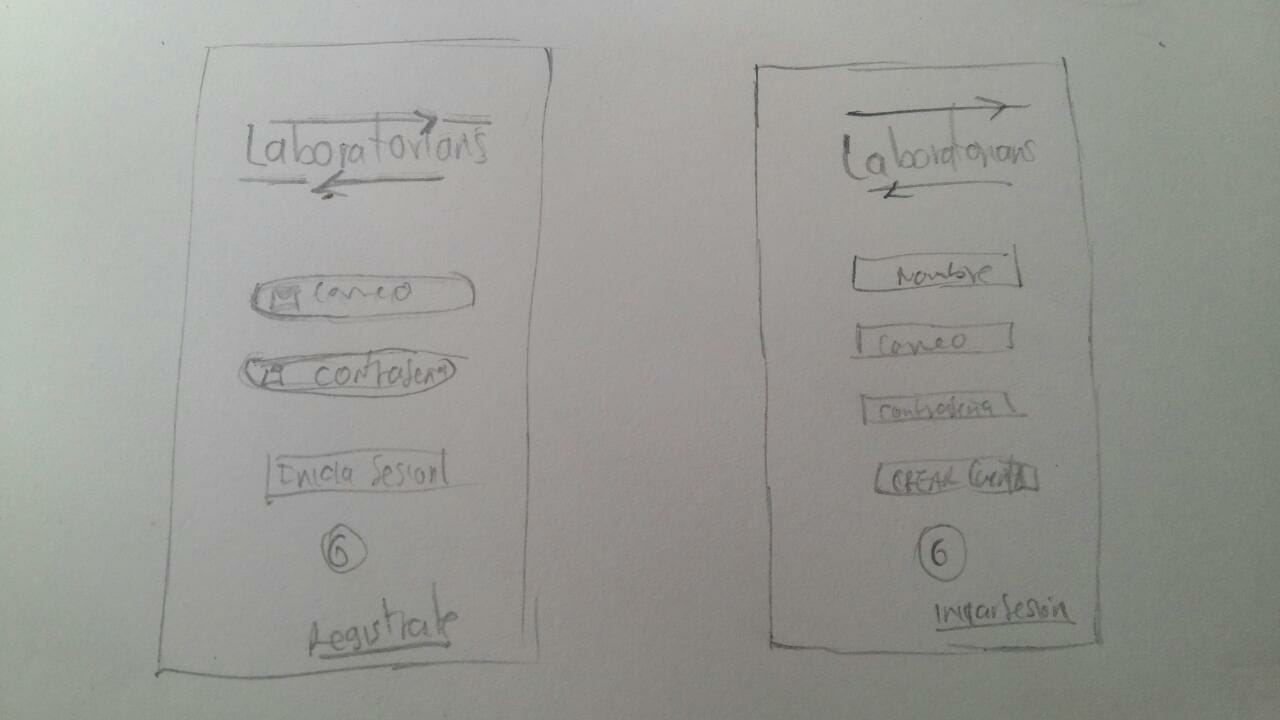 Laboratorians
correo
contraseña
Inicia Sesion
G
Registrate
Laboratorians
Nombre
correo
contraseña
CREAR Cuenta
G
Iniciar Sesión